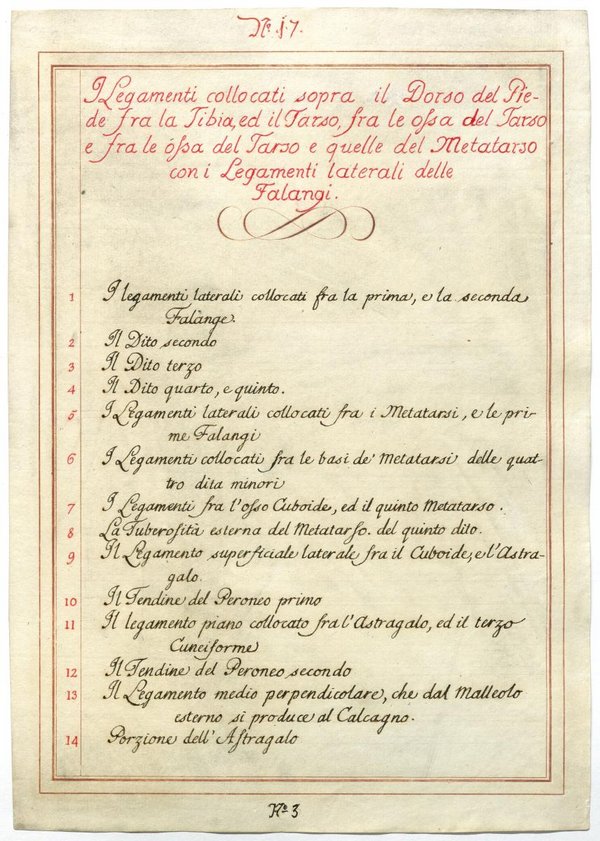 No. 17.
I Legamenti collocati sopra il Dorso del Pie-
de fra la Tibia, ed il Tarso, fra le ossa del Tarso
e fra le óssa del Tarso e quelle del Metatarso
con i Legamenti laterali delle
Falangi.
1 I legamenti laterali collocati fra la prima, e la seconda
Falange.
2 Il Dito secondo
3 Il Dito terzo
4 Il Dito quarto, e quinto.
5 I Legamenti laterali collocati fra i Metatarsi, e le pri-
me Falangi
6 I Legamenti collocati fra le basi de' Metatarsi delle quat-
tro dita minori
7 I Legamenti fra l'osso Cuboide, ed il quinto Metatarso.
8 La Tuberosità esterna del Metatarso. del quinto dito.
9 Il Legamento superficiale laterale fra il Cuboide, e l'Astra-
galo.
10 Il Tendine del Peroneo primo
11 Il legamento piano collocato fra l'Astragalo, ed il terzo
Cuneiforme
12 Il Tendine del Peroneo secondo
13 Il Legamento medio perpendicolare, che dal Malleolo
esterno si produce al Calcagno.
14 Porzione dell'Astragalo
No. 3